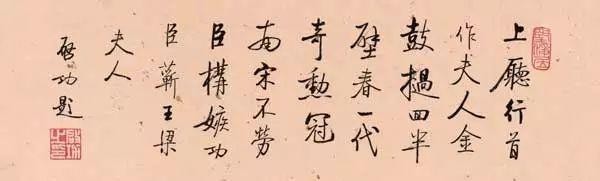 上廳行首
作夫人金
鼓撾回半
壁春一代
奇勳冠
南宋不勞
臣構嫉功
臣蘄王梁
夫人
啟功題